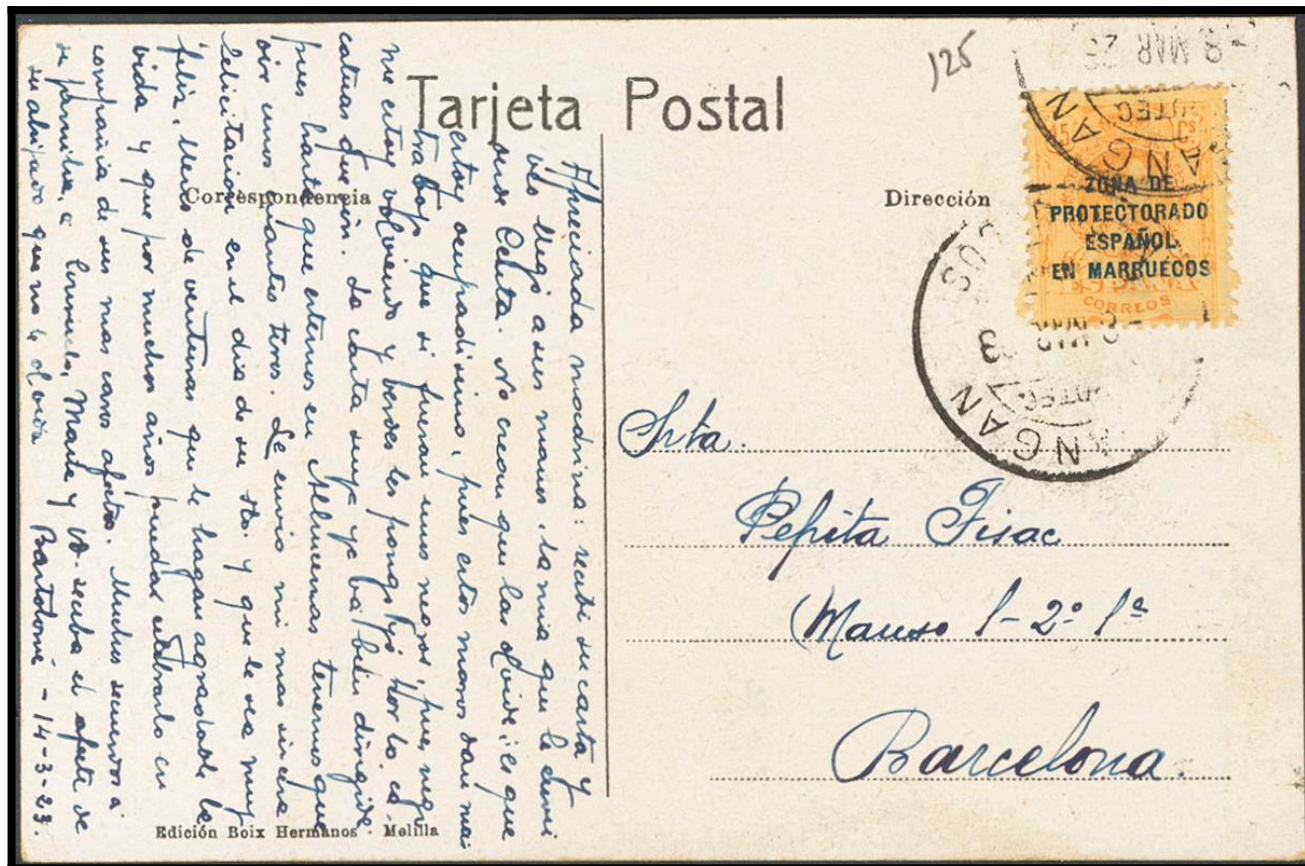 125
Tarjeta Postal
Correspondencia
Dirección
8 MAR 23
15 Cs
ZONA DE
PROTECTORADO
ESPAÑOL
EN MARRUECOS
CORREOS
Apreciada madrina: recibi su carta y
veo llegó a sus manos la mia que le
desde Ceuta. No crean que las olvide; es que
estoy ocupadisimo, pues estos moros dan mas
trabajo que si fueran unos negros, pues, negro
me estoy volviendo y verdes los pongo yo por la
catorias que sin. La carta suya ya bá bien dirigida
pues hasta que estemos en Alhucemas tenemos que
oir unos cuantos tiros. Le envio mi mas sincera
felicitación en el dia de su Sto. y que le sea muy
feliz, lleno de venturas que le hagan agradable la
vida y que por muchos años puedas celebrarlo en
compañia de sus mas caros afectos. Muchos recuerdos á
su familia, á Consuelo, Maria y Vd. reciba el afecto de
su ahijado que no le olvida
Bartolomé - 14-3-23.
Srta.
Pepita Fisac
Manso 1-2º 1ª
Barcelona.
Edición Boix Hermanos - Melilla